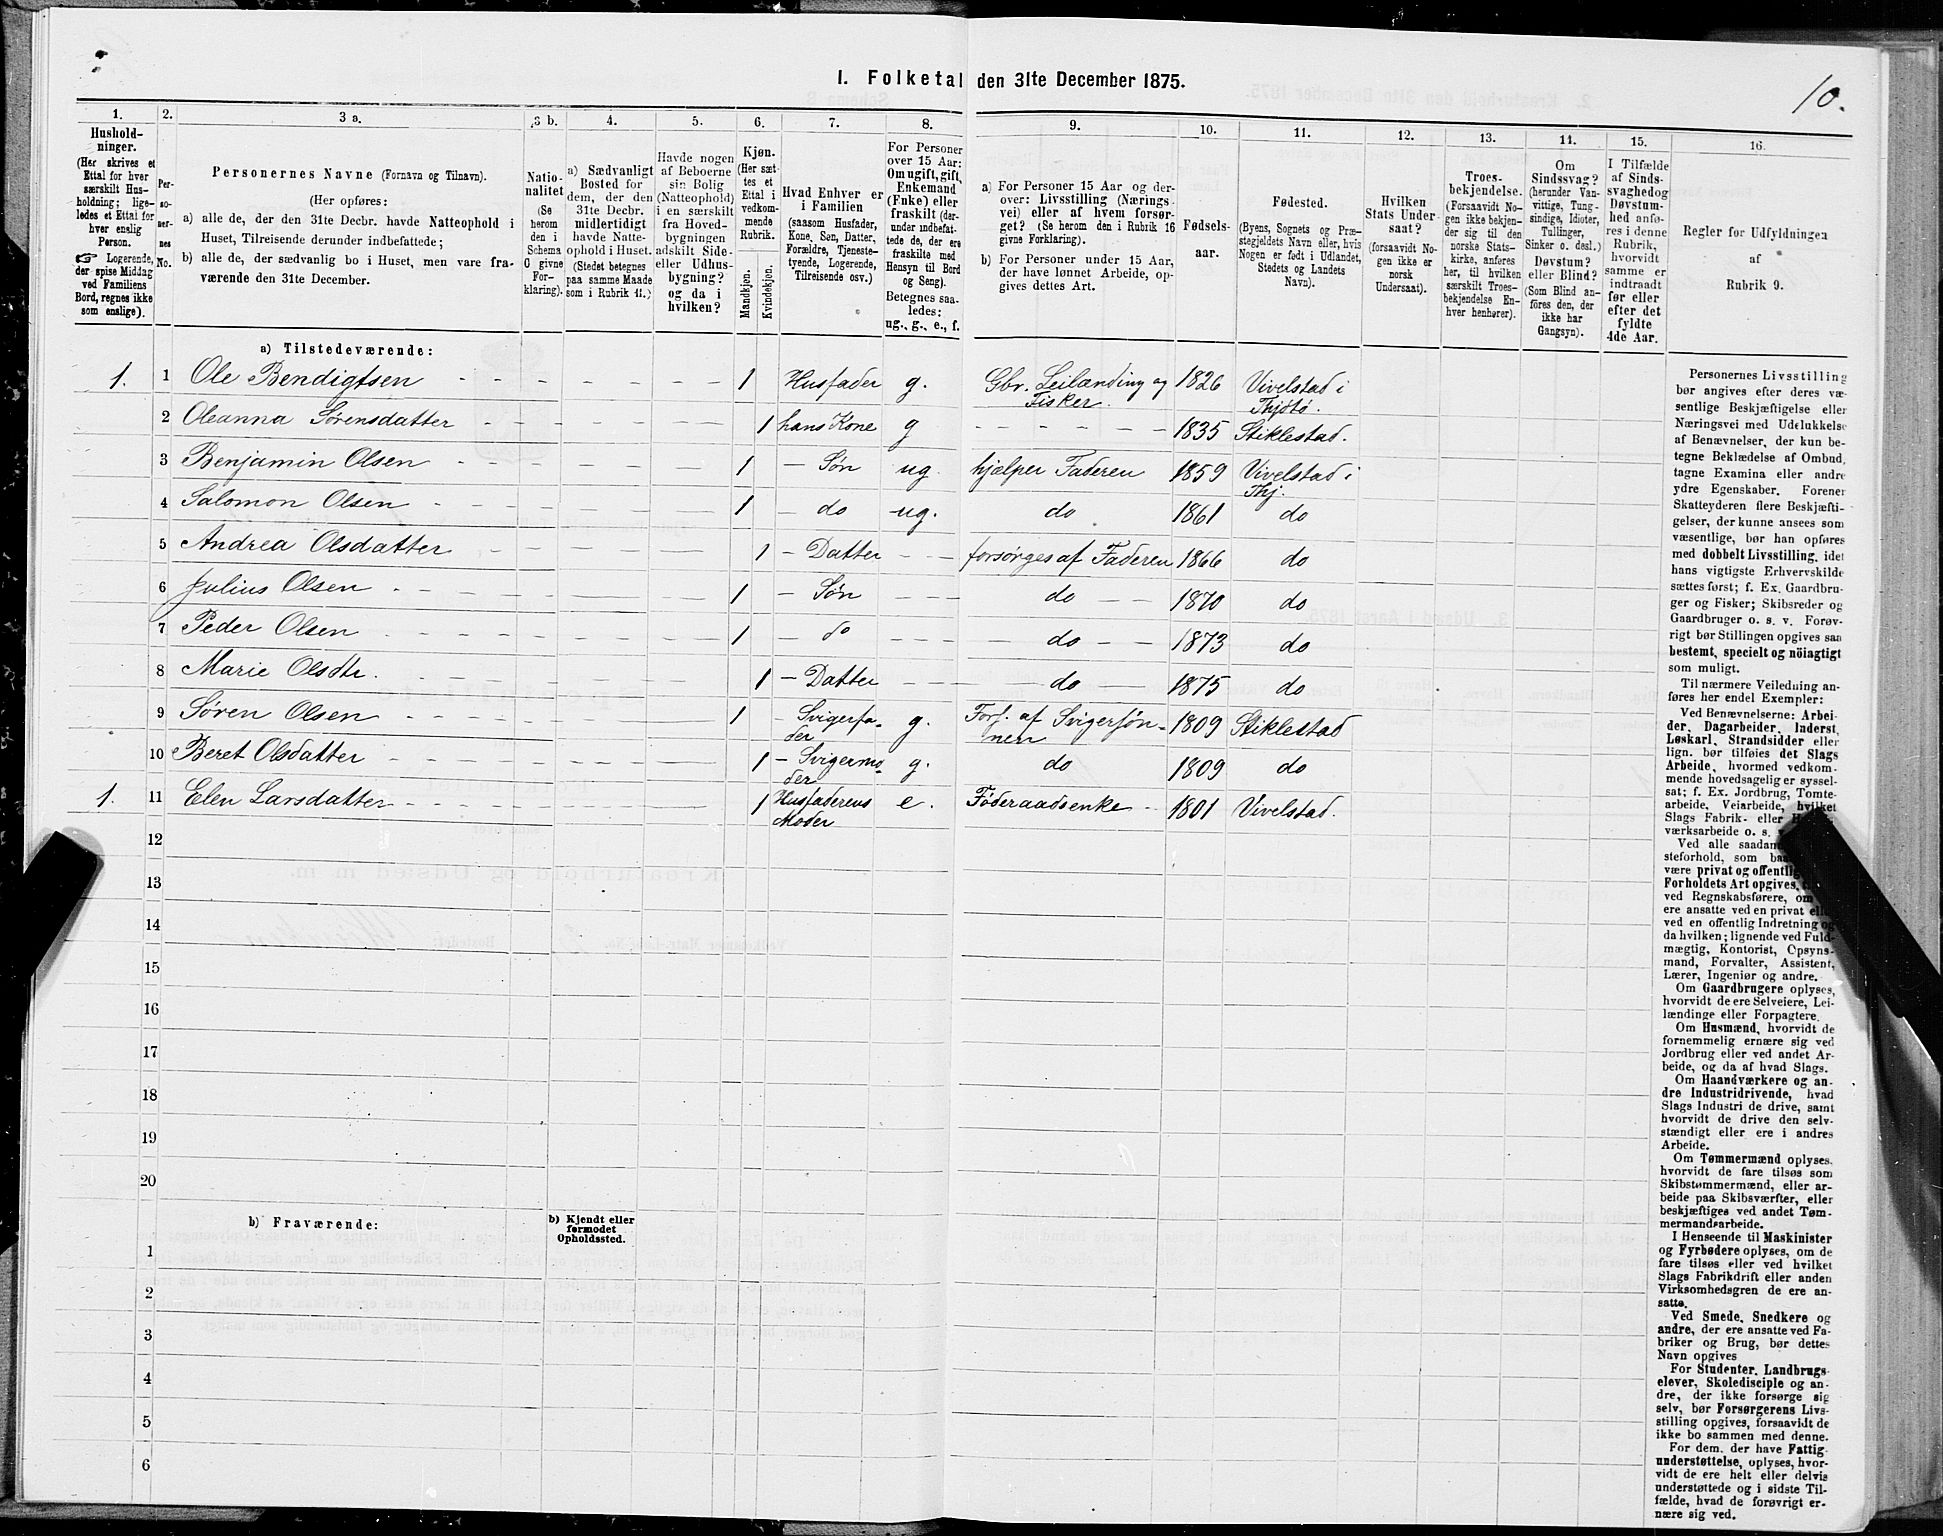 I. Folketal den 31te December 1875.
10.
1. 2. 3 a. 3 b. 4. 5. 6. 7. 8. 9. 10. 11. 12. 13. 14. 15. 16.
Hushold-
ninger.
(Her skrives et
Ettal for hver
særskilt Hus-
holdning; lige-
ledes et Ettal for
hver enslig
Person.
☞ Logerende,
der spise Middag
ved Familiens
Bord, regnes ikke
som enslige).
Per-
so-
ner-
nes
No.
Personernes Navne (Fornavn og Tilnavn).
(Her opføres:
a) alle de, der den 31te Decbr. havde Natteophold i
Huset, Tilreisende derunder indbefattede;
b) alle de, der sædvanlig bo i Huset, men vare fra-
værende den 31te December.
Natio-
nalitet
(Se
herom
den i
Schema
O givne
For-
klaring).
a) Sædvanligt
Bosted for
dem, der den
31te Decbr.
midlertidigt
havde Natte-
ophold i Huset.
(Stedet betegnes
paa samme Maade
som i Rubrik 11.)
Havde nogen
af Beboerne
sin Bolig
(Natteophold)
i en særskilt
fra Hoved-
bygningen
adskilt Side-
eller Udhus-
bygning?
og da i
hvilken?
Kjøn.
(Her sæt-
tes et
Ettal i
vedkom-
mende
Rubrik.
Mandkjøn.
Kvindekjøn.
Hvad Enhver er
i Familien
(saasom Husfader,
Kone, Søn, Datter,
Forældre, Tjeneste-
tyende, Logerende,
Tilreisende osv.)
For Personer
over 15 Aar:
Om ugift, gift,
Enkemand
(Enke) eller
fraskilt (der-
under indbefat-
tede de, der ere
fraskilte med
Hensyn til Bord
og Seng).
Betegnes saa-
ledes:
ug., g., e., f.
a) For Personer 15 Aar og der-
over: Livsstilling (Nærings-
vei) eller af hvem forsør-
get? (Se herom den i Rubrik 16
givne Forklaring).
b) For Personer under 15 Aar,
der have lønnet Arbeide, op-
gives dettes Art.
Fødsels-
aar.
Fødested.
(Byens, Sognets og Præ-
stegjeldets Navn eller, hvis
Nogen er født i Udlandet,
Stedets og Landets
Navn).
Hvilken
Stats Under-
saat?
(forsaavidt No-
gen ikke er
norsk
Undersaat).
Troes-
bekjendelse.
(Forsaavidt No-
gen ikke bekjen-
der sig til den
norske Stats-
kirke, anføres
her, til hvilken
særskilt Troes-
bekjendelse En-
hver henhører).
Om
Sindssvag?
(herunder Van-
vittige, Tung-
sindige, Idioter,
Tullinger,
Sinker o. desl.)
Døvstum?
eller Blind?
(Som Blind an-
føres den, der
ikke har
Gangsyn).
I Tilfælde
af Sinds-
svaghed og
Døvstum-
hed anfø-
res i denne
Rubrik,
hvorvidt
samme er
indtraadt
før eller
efter det
fyldte
4de Aar.
Regler for Udfyldningen
af
Rubrik 9.
a) Tilstedeværende:
1. 1 Ole Bendigtsen 1 Husfader g. Gbr. Leilænding og Fisker. 1826 Vivelstad i Thjøtø.
2 Oleanna Sørensdatter 1 hans Kone g 1835 Stiklestad.
3 Benjamin Olsen 1 – Søn ug. hjælper Faderen 1859 Vivelstad i Thj.
4 Salomon Olsen 1 – do ug. do 1861 do
5 Andrea Olsdatter 1 – Datter forsørges af Faderen 1866 do
6 Julius Olsen 1 – Søn do 1870 do
7 Peder Olsen 1 – do do 1873 do
8 Marie Olsdtr. 1 – Datter do 1875 do
9 Søren Olsen 1 – Svigerfader g. Fors. af Svigersønnen 1809 Stiklestad
10 Beret Olsdatter 1 – Svigermoder g. do 1809 do
1. 11 Elen Larsdatter 1 Husfaderens Moder e. Føderaadsenke 1801 Vivelstad.
12
13
14
15
16
17
18
19
20
b) Fraværende:
b) Kjendt eller
formodet
Opholdssted.
1
2
3
4
5
6
Personernes Livsstilling
bør angives efter deres væ-
sentlige Beskjæftigelse eller
Næringsvei med Udelukkelse
af Benævnelser, der kun be-
tegne Beklædelse af Ombud,
tagne Examina eller andre
ydre Egenskaber. Forener
Skatteyderen flere Beskjæfti-
gelser, der kunne ansees som
væsentlige, bør han opføres
med dobbelt Livsstilling, idet
hans vigtigste Erhvervskilde
sættes først; f. Ex. Gaardbru-
ger og Fisker; Skibsreder og
Gaardbruger o. s. v. Forøv-
rigt bør Stillingen opgives saa
bestemt, specielt og nöiagtigt
som muligt.
Til nærmere Veiledning an-
føres her endel Exempler:
Ved Benævnelserne: Arbei-
der, Dagarbeider, Inderst,
Løskarl, Strandsidder eller
lign. bør tilføies det Slags
Arbeide, hvormed vedkom-
mende hovedsagelig er syssel-
sat; f. Ex. Jordbrug, Tomte-
arbeide, Veiarbeide, hvilket
Slags Fabrik- eller
værksarbeide o. s.
Ved alle saadan
steforhold, som
være privat og offentlig
Forholdets Art opgives,
ved Regnskabsførere, om
ere ansatte ved en privat
ved en offentlig Indretning og
da hvilken; lignende ved Fuld-
mægtig, Kontorist, Opsyns-
mand, Forvalter, Assistent,
Lærer, Ingeniør og andre.
Om Gaardbrugere oplyses,
hvorvidt de ere Selveiere, Lei-
lændinge eller Forpagtere.
Om Husmænd, hvorvidt de
fornemmelig ernære sig ved
Jordbrug eller ved andet Ar-
beide, og da af hvad Slags.
Om Haandværkere og an-
dre Industridrivende, hvad
Slags Industri de drive, samt
hvorvidt de drive den selv-
stændigt eller ere i andres
Arbeide.
Om Tømmermænd oplyses,
hvorvidt de fare tilsøs som
Skibstømmermænd, eller ar-
beide paa Skibsværfter, eller
beskjæftiges ved andet Tøm-
mermandsarbeide.
I Henseende til Maskinister
og Fyrbødere oplyses, om de
fare tilsøs eller ved hvilket
Slags Fabrikdrift eller anden
Virksomhedsgren de ere an-
satte.
Ved Smede, Snedkere og
andre, der ere ansatte ved Fa-
briker og Brug, bør dettes
Navn opgives
For Studenter, Landbrugs-
elever, Skoledisciple og an-
dre, der ikke forsørge sig
selv, bør Forsørgerens Livs-
stilling opgives, forsaavidt de
ikke bo sammen med denne.
For dem, der have Fattig-
understøttelse, oplyses, hvor-
vidt de ere helt eller delvis
understøttede og i sidste Til-
fælde, hvad de forøvrigt er-
nære sig ved.